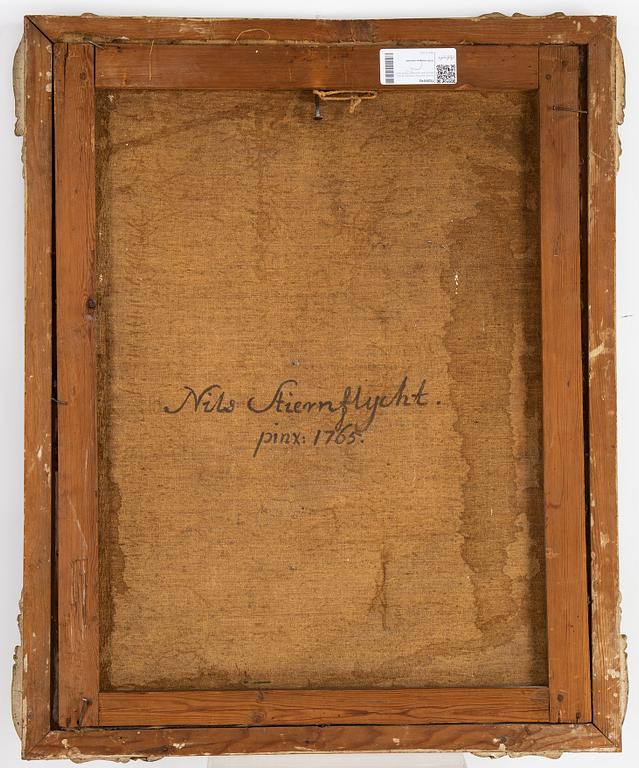 Nils Stiernflycht.
pinx: 1765.